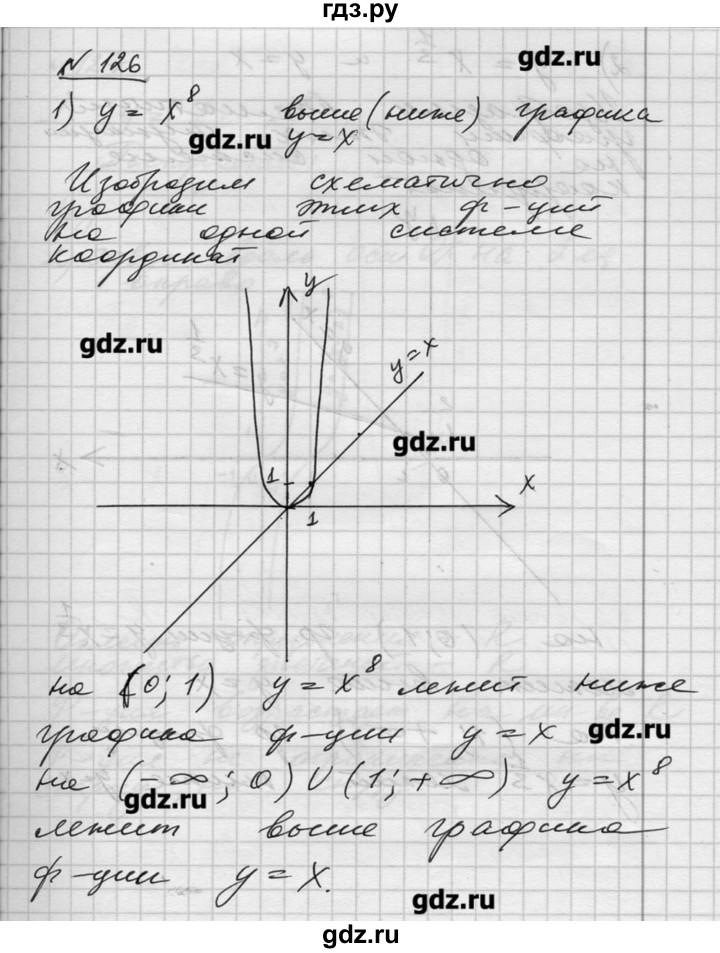 гдз.ру
gdz.ru
N 126
1) y = x⁸ выше (ниже) графика
gdz.ru y = x
Изобразим схематично
графики этих ф-ций
на одной системе
координат
y
gdz.ru
y = x
gdz.ru
1
x
1
на (0; 1) y = x⁸ лежит ниже
графика ф-ции y = x gdz.ru
на (-∞; 0) ∪ (1; +∞) y = x⁸
gdz.ru
лежит выше графика
ф-ции y = x.
gdz.ru
gdz.ru